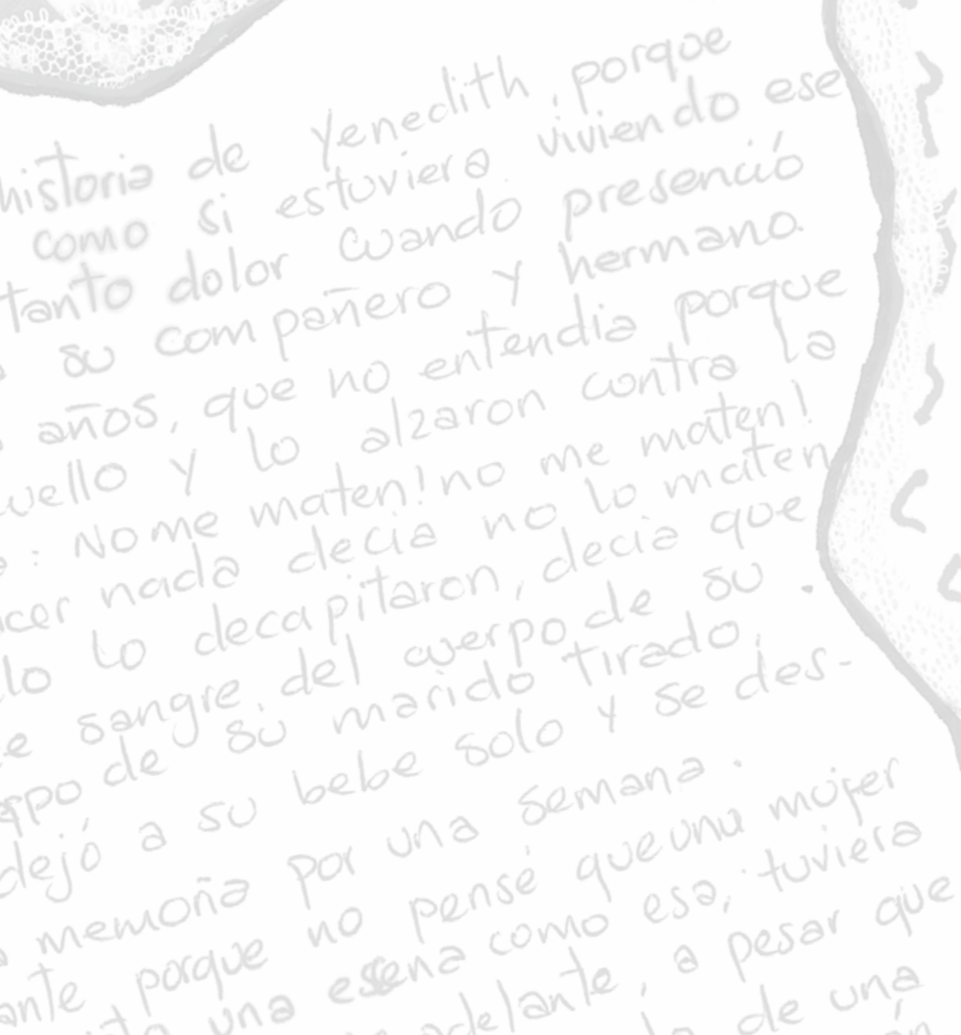 historia de Yenedith, porque
como si estuviera viviendo ese
tanto dolor cuando presenció
su compañero y hermano.
años, que no entendia porque
uello y lo alzaron contra la
: No me maten! no me maten!
cer nada decia no lo maten
lo lo decapitaron, decia que
e sangre, del cuerpo de su
po de su marido tirado,
dejó a su bebe solo y se des-
memoria por una semana.
ante, porque no pensé que una mujer
una escena como esa, tuviera
adelante, a pesar que
de una